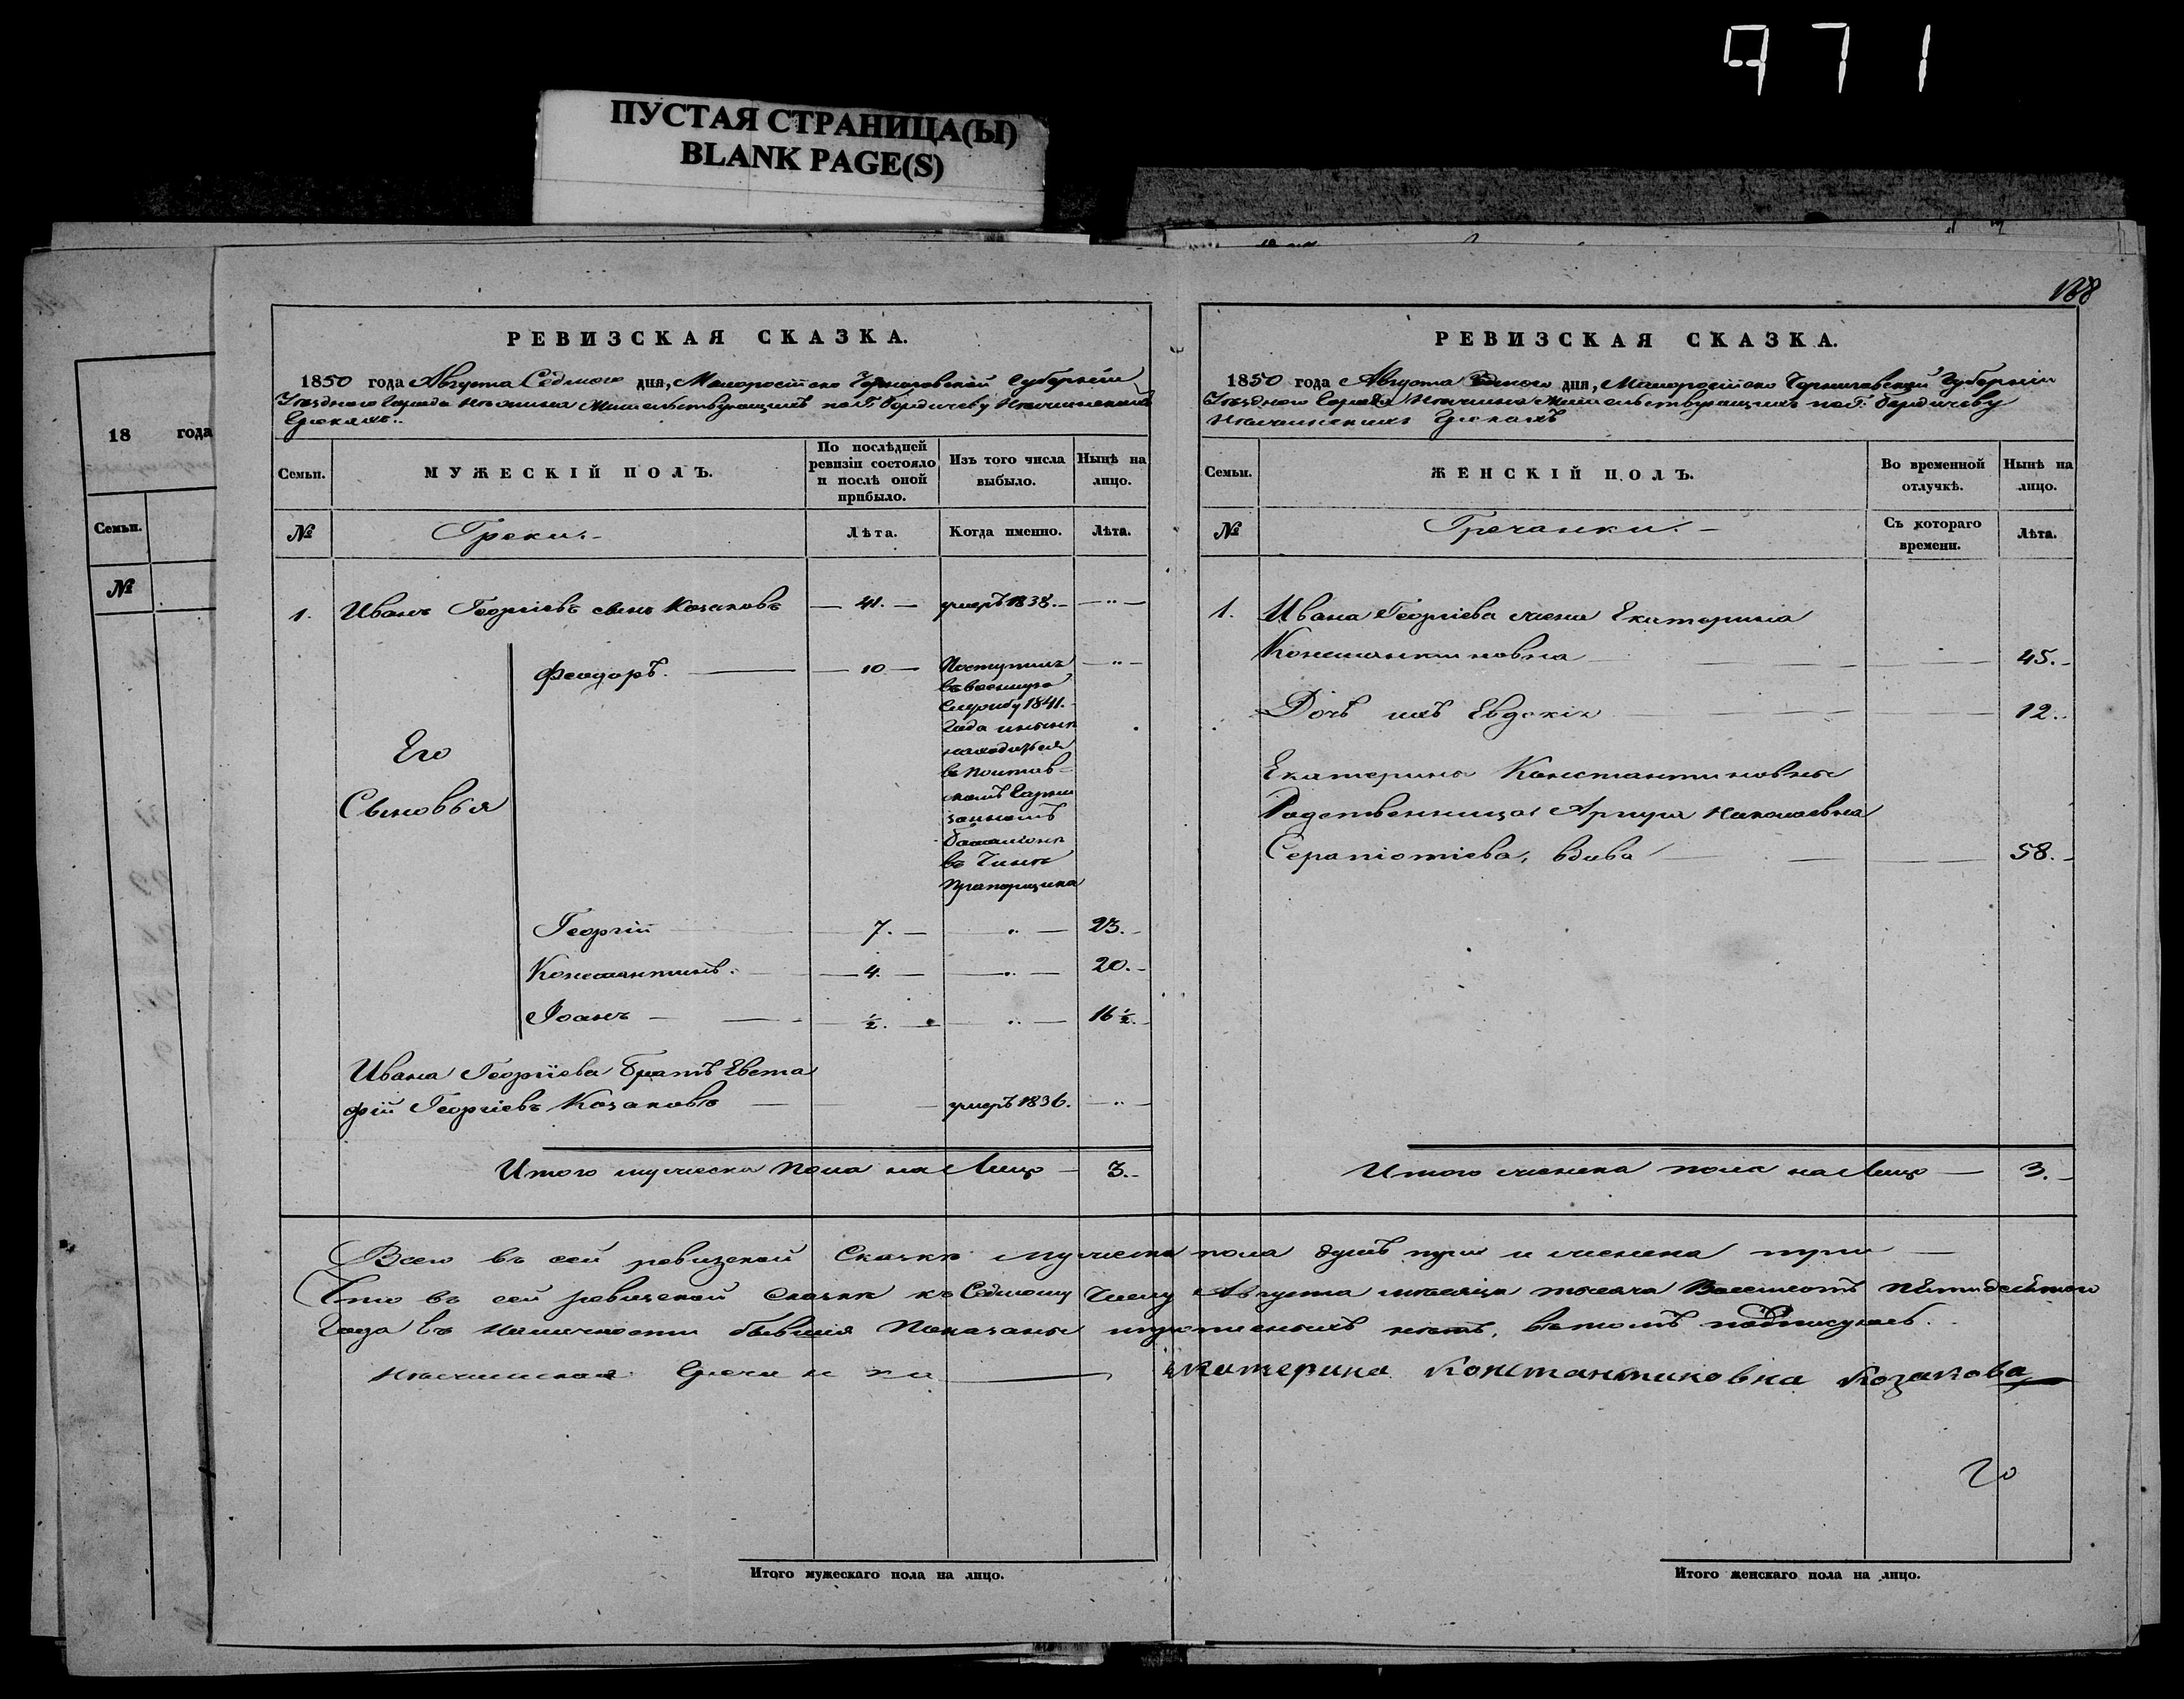 971
ПУСТАЯ СТРАНИЦА(Ы)
BLANK PAGE(S)
18 года
Семьи.
№
РЕВИЗСКАЯ СКАЗКА.
1850 года Августа Седмого дня, Малороссійско Черниговской Губерніи
Уѣзднаго Города Нѣжина Жительствующихъ по Г. Бердичеву Нѣжинскихъ
Грекахъ.
Семьи.
МУЖЕСКІЙ ПОЛЪ.
По послѣдней ревизіи состояло и послѣ оной прибыло.
Изъ того числа выбыло.
Нынѣ на лицо.
№
Греки.
Лѣта.
Когда именно.
Лѣта.
1. Иванъ Георгіевъ сынъ Козаковъ — 41. — умеръ 1838. — „ —
Его
Сыновья
Феодоръ. — 10 — Поступилъ — „ —
въ военную
Службу 1841.
Года и нынѣ
находится
въ
скомъ Гарни
зонномъ
баталіонѣ
въ Чинѣ
Прапорщика
Георгій — 7. — „ — 23.
Константинъ. — 4. — „ — 20.
Іоанъ — ½. — „ — 16½.
Ивана Георгіева братъ Евста
фій Георгіевъ Козаковъ — умеръ 1836. — „ —
Итого мужеска пола на Лицо — 3.
188
РЕВИЗСКАЯ СКАЗКА.
1850 года Августа Седмого дня, Малороссійско Черниговской Губерніи
Уѣздного Города Нѣжина Жительствующихъ по Г. Бердичеву
Нѣжинскихъ Грекахъ
Семьи.
ЖЕНСКІЙ ПОЛЪ.
Во временной отлучкѣ.
Нынѣ на лицо.
№
Гречанки.
Съ котораго времени.
Лѣта.
1. Ивана Георгіева жена Екатерина
Константиновна — 45.
Дочь ихъ Евдокія — 12.
Екатерины Константиновны
Родственница Аргира Николаевна
Серапіотіева, вдова — 58.
Итого женска пола на Лицо — 3.
Всего въ сей ревизской Сказкѣ мужеска пола душъ три и женска три —
Что въ сей ревизской Сказкѣ къ Седмому Числу Августа мѣсяца тысяча Восемсотъ пятидесятого
Года въ наличности бывшія Показаны и нѣтъ, въ томъ подписуюсь.
Нѣжинская Гречанка — Екатерина Константиновна Козакова
Итого мужескаго пола на лицо.
Итого женскаго пола на лицо.